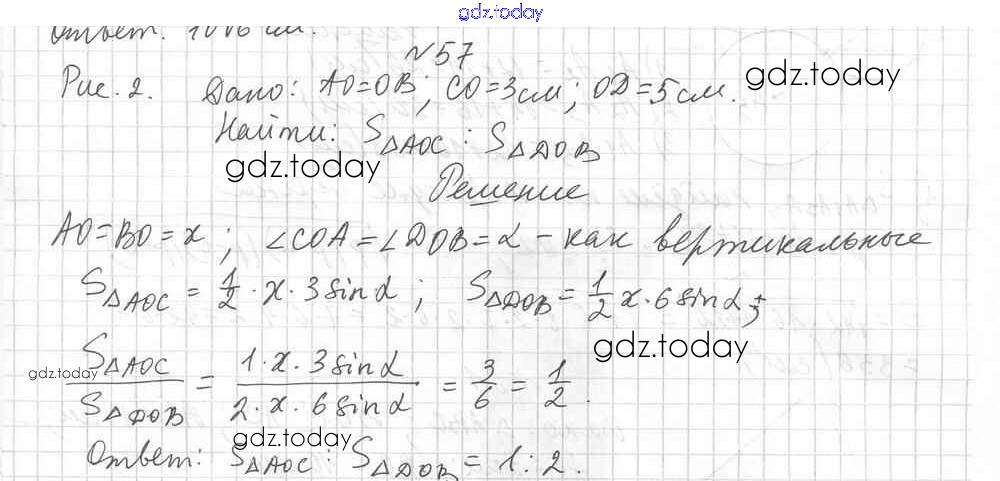 gdz.today
Ответ: 1006 см.
№57
Рис. 2. Дано: AO=OB; CO=3см; OD=5см. gdz.today
Найти: S△AOC : S△DOB
gdz.today
Решение
AO=BO=x; ∠COA=∠DOB=α – как вертикальные
S△AOC = 1/2 · x · 3 sin α; S△DOB = 1/2 x · 6 sin α;
gdz.today
gdz.today
S△AOC / S△DOB = 1·x·3 sin α / 2·x·6 sin α = 3/6 = 1/2.
gdz.today
Ответ: S△AOC : S△DOB = 1:2.